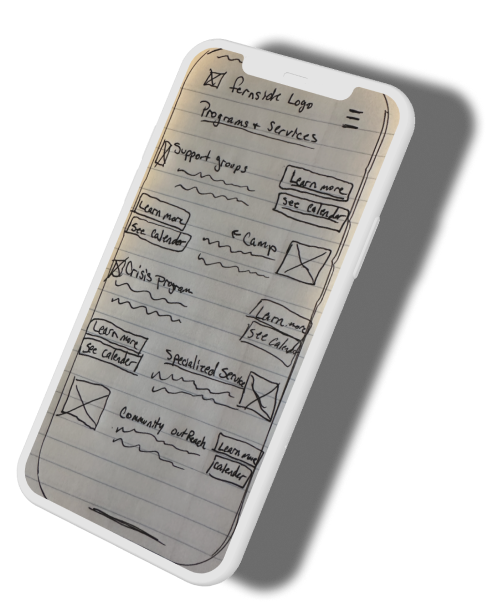 fernside Logo
Programs + Services
Support groups
Learn more
See Calendar
Learn more
See Calendar
Camp
Crisis Program
Learn more
See Calendar
Learn more
See Calender
Specialized Service
Community outReach
Learn more
Calendar